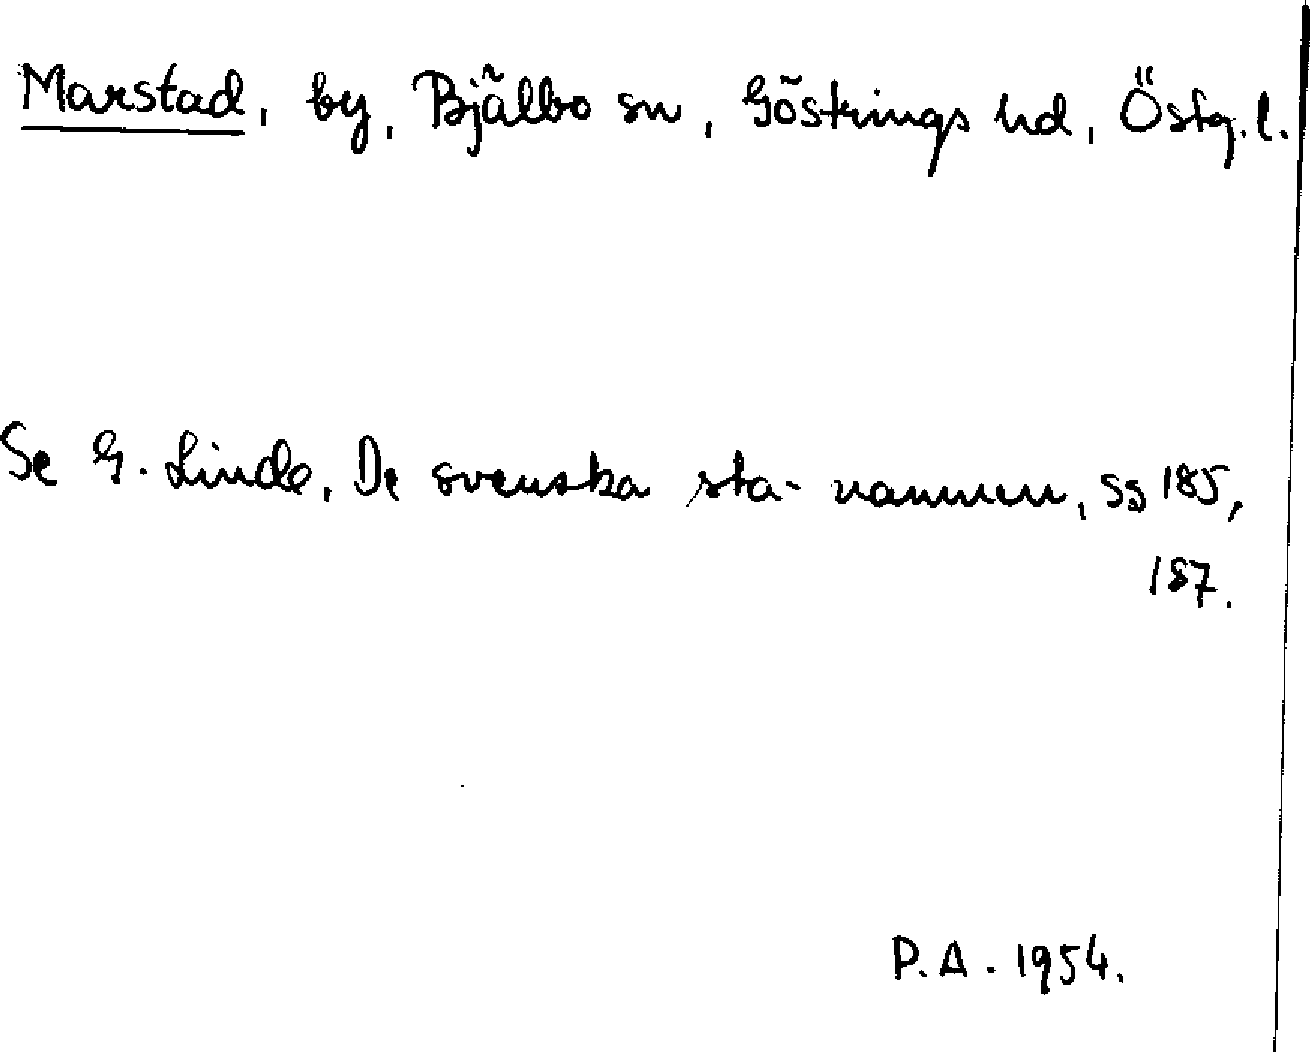 Marstad, by, Bjälbo sn, Göstrings hd, Östg. l.
Se G. Linde, De svenska sta-namnen, ss 185,
187.
P.A. 1954.